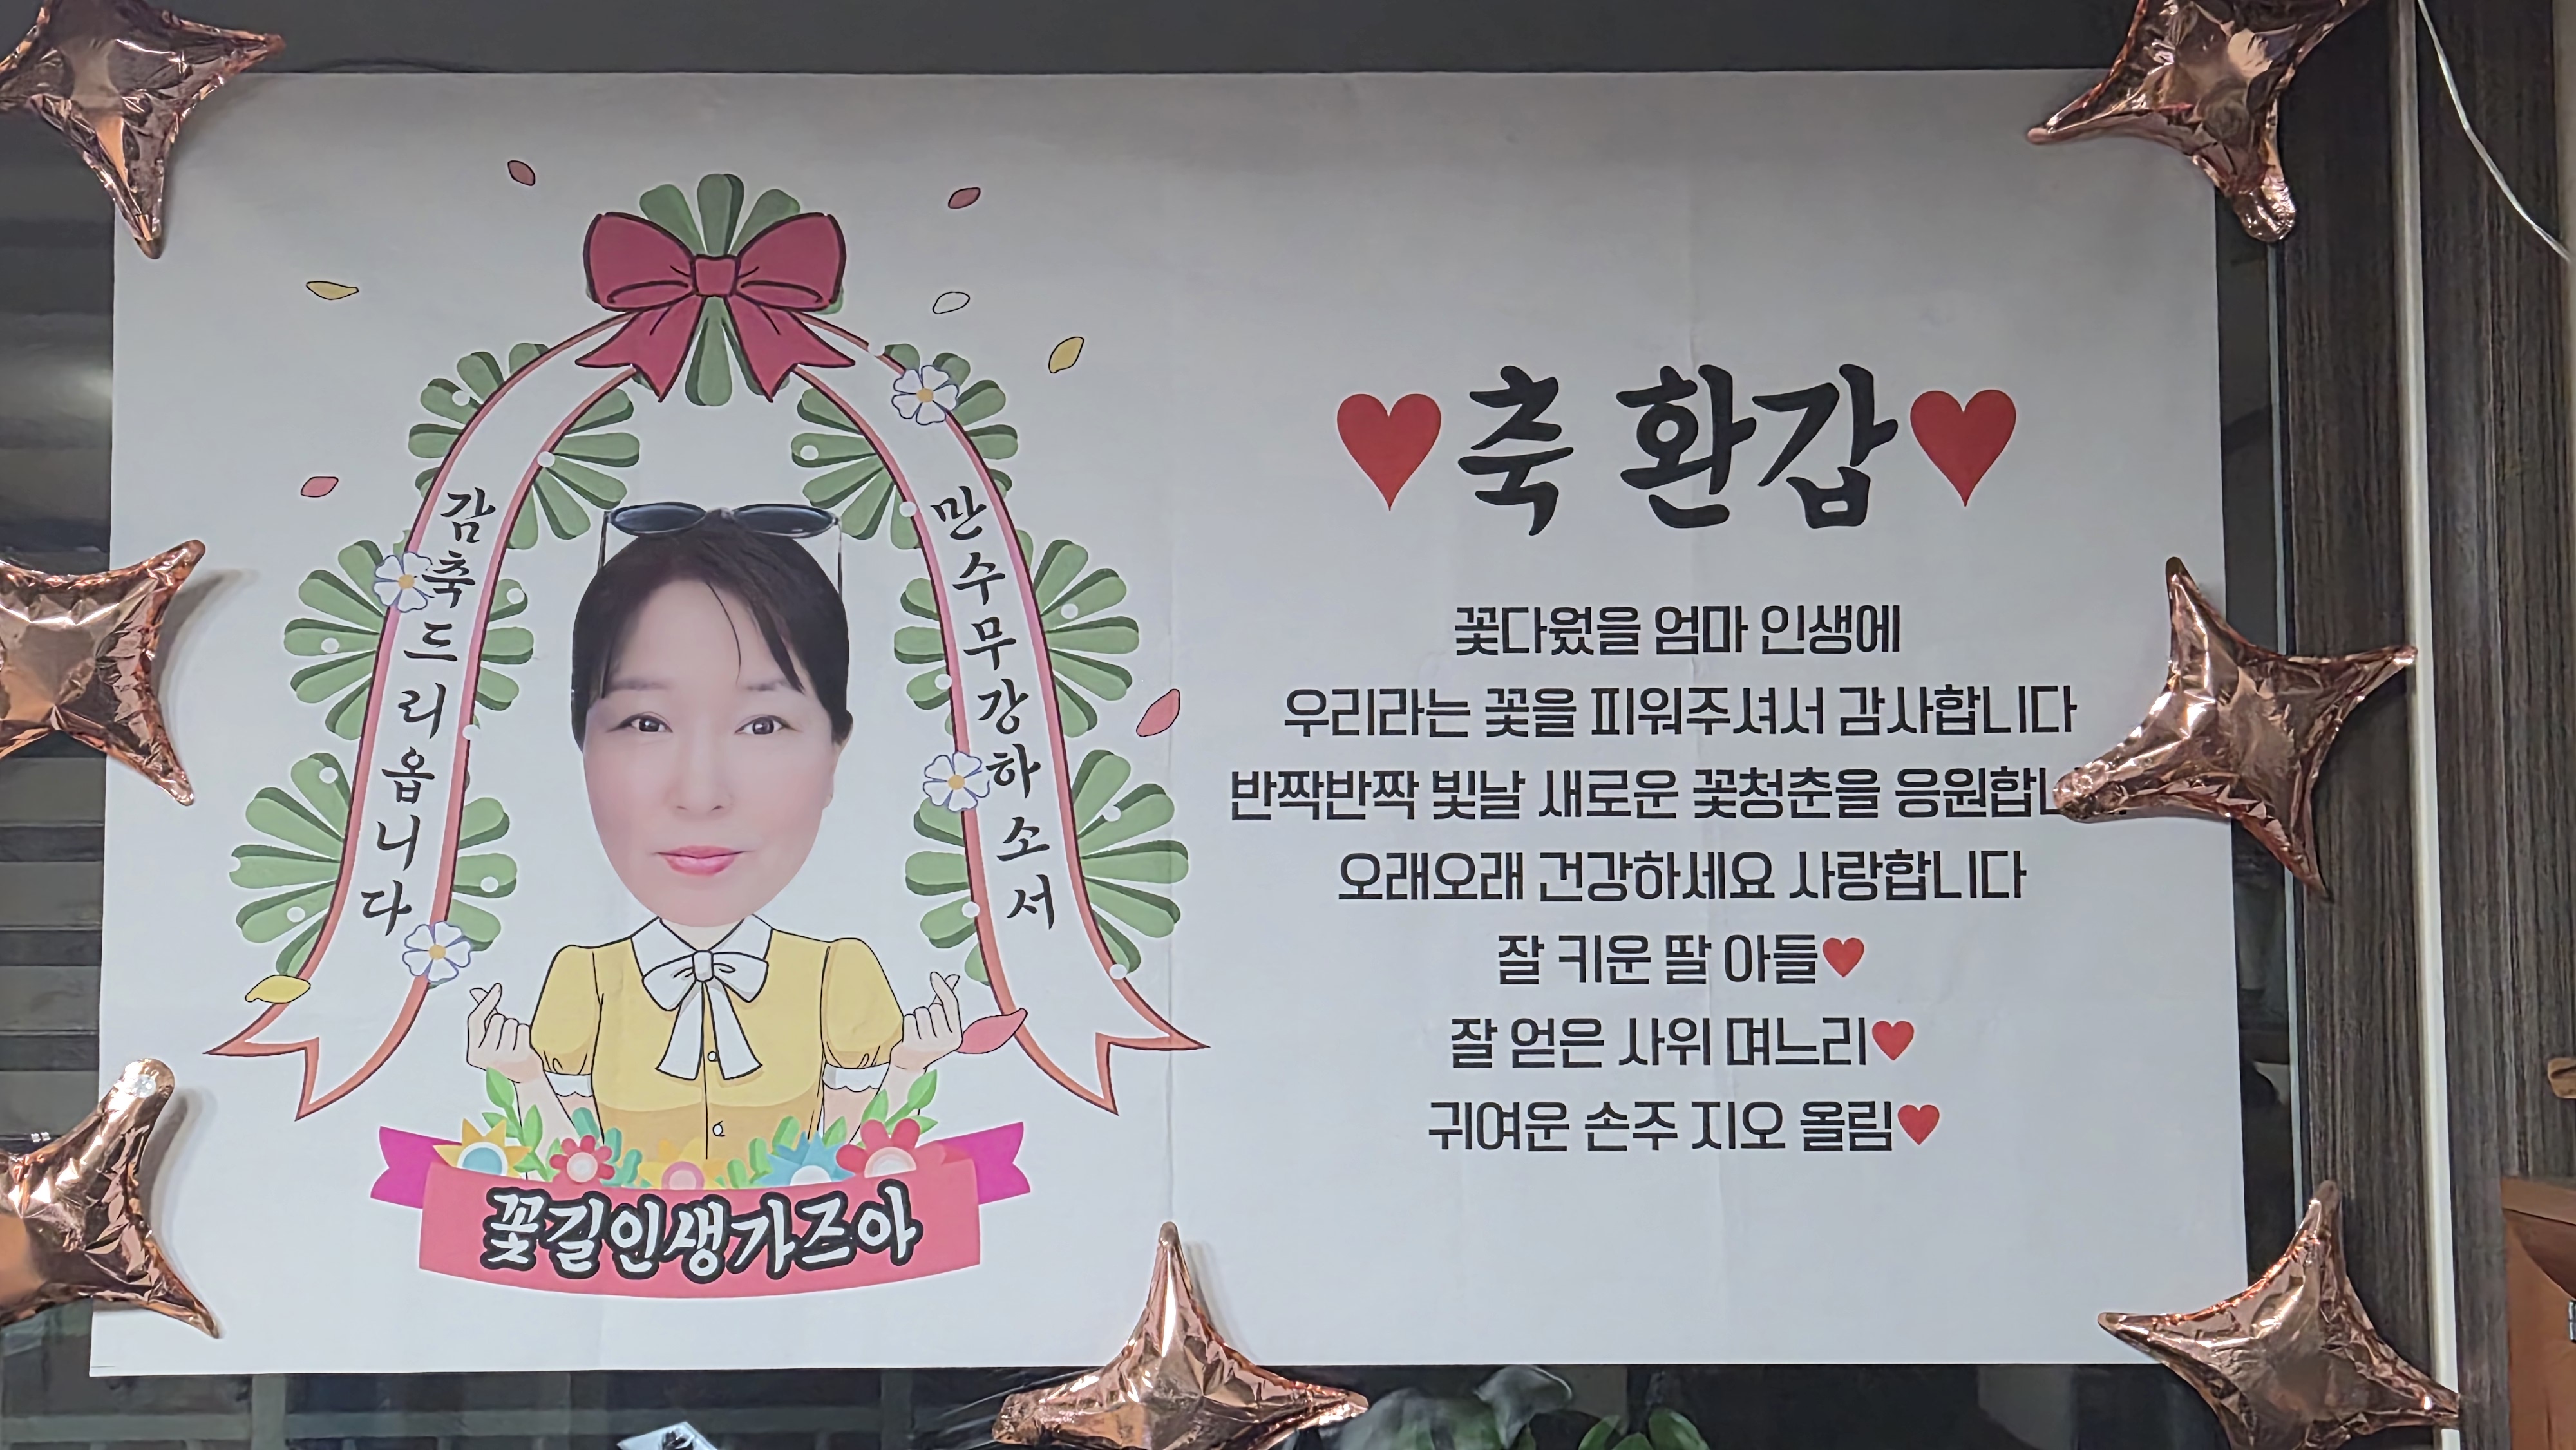 감축드리옵니다
만수무강하소서
꽃길인생가즈아
♥축 환갑♥
꽃다웠을 엄마 인생에
우리라는 꽃을 피워주셔서 감사합니다
반짝반짝 빛날 새로운 꽃청춘을
오래오래 건강하세요 사랑합니다
잘 키운 딸 아들♥
잘 얻은 사위 며느리♥
귀여운 손주 지오 올림♥